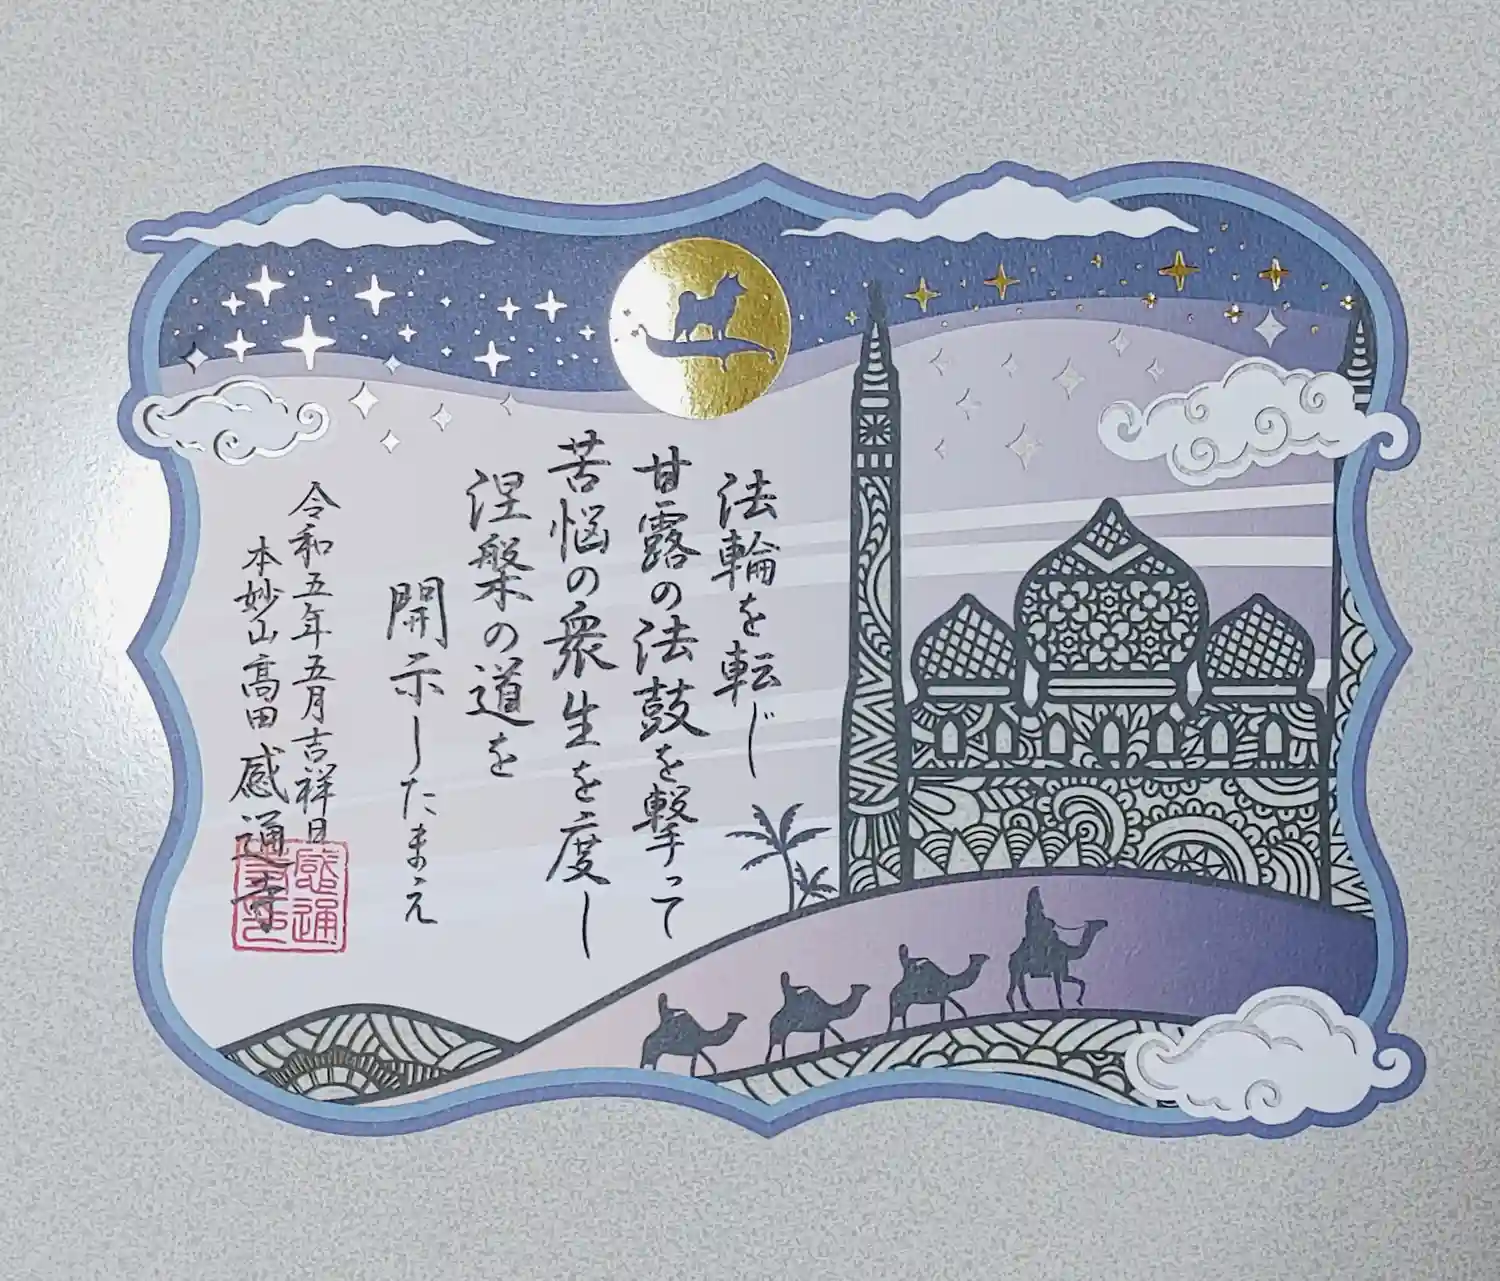 法輪を転じ
甘露の法鼓を撃って
苦悩の衆生を度し
涅槃の道を
開示したまえ
令和五年五月吉祥日
本妙山高田感通寺
感通
寺印